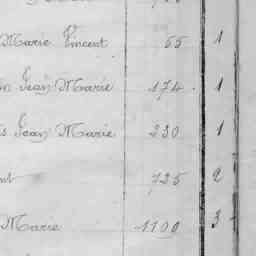 Marie Vincent 55 1
Jean Marie 174. 1
Jean Marie 230 1
725 2
Marie 1100 3